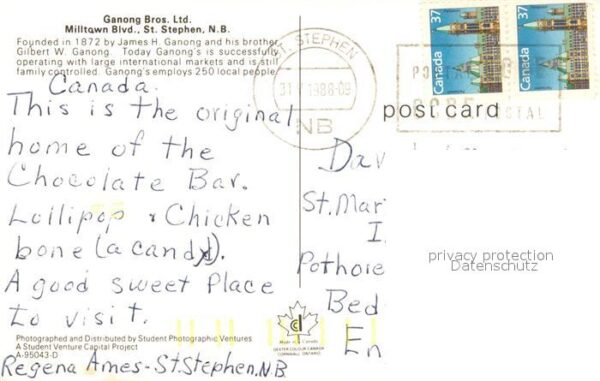 Ganong Bros. Ltd.
Milltown Blvd., St. Stephen, N.B.
Founded in 1872 by James H. Ganong and his brother
Gilbert W. Ganong Today Ganong's is successfully
operating with large international markets and is still
family controlled. Ganong's employs 250 local people
Canada.
This is the original
home of the
Chocolate Bar.
Lollipop & Chicken
bone (a candy).
A good sweet Place
to visit.
Photographed and Distributed by Student Photographic Ventures
A Student Venture Capital Project
A-95043-D
Regena Ames - St. Stephen, N.B.
ST. STEPHEN
1988-09
NB
37
Canada
37
Canada
post card
Dav
St. Mar
I
Pothore
Bed
En
privacy protection
Datenschutz
Made in Canada
DEXTER COLOUR CANADA
CORNWALL, ONTARIO